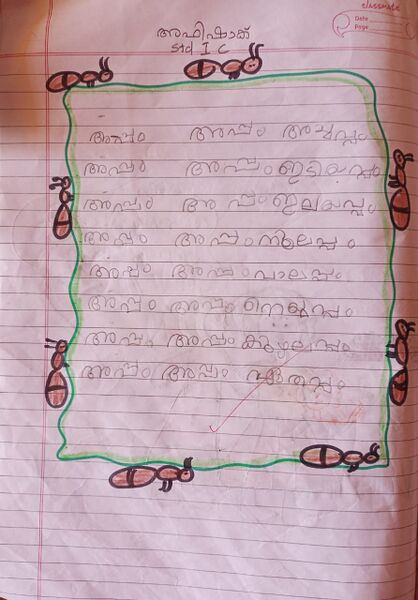 classmate
Date
Page
അഫിഷാക്
Std I C
അപ്പം അപ്പം അച്ചപ്പം
അപ്പം അപ്പം ഇടിയപ്പം
അപ്പം അപ്പം ഇലയപ്പം
അപ്പം അപ്പം
അപ്പം അപ്പം പാലപ്പം
അപ്പം അപ്പം നെയ്യപ്പം
അപ്പം അപ്പം കുഴലപ്പം
അപ്പം അപ്പം